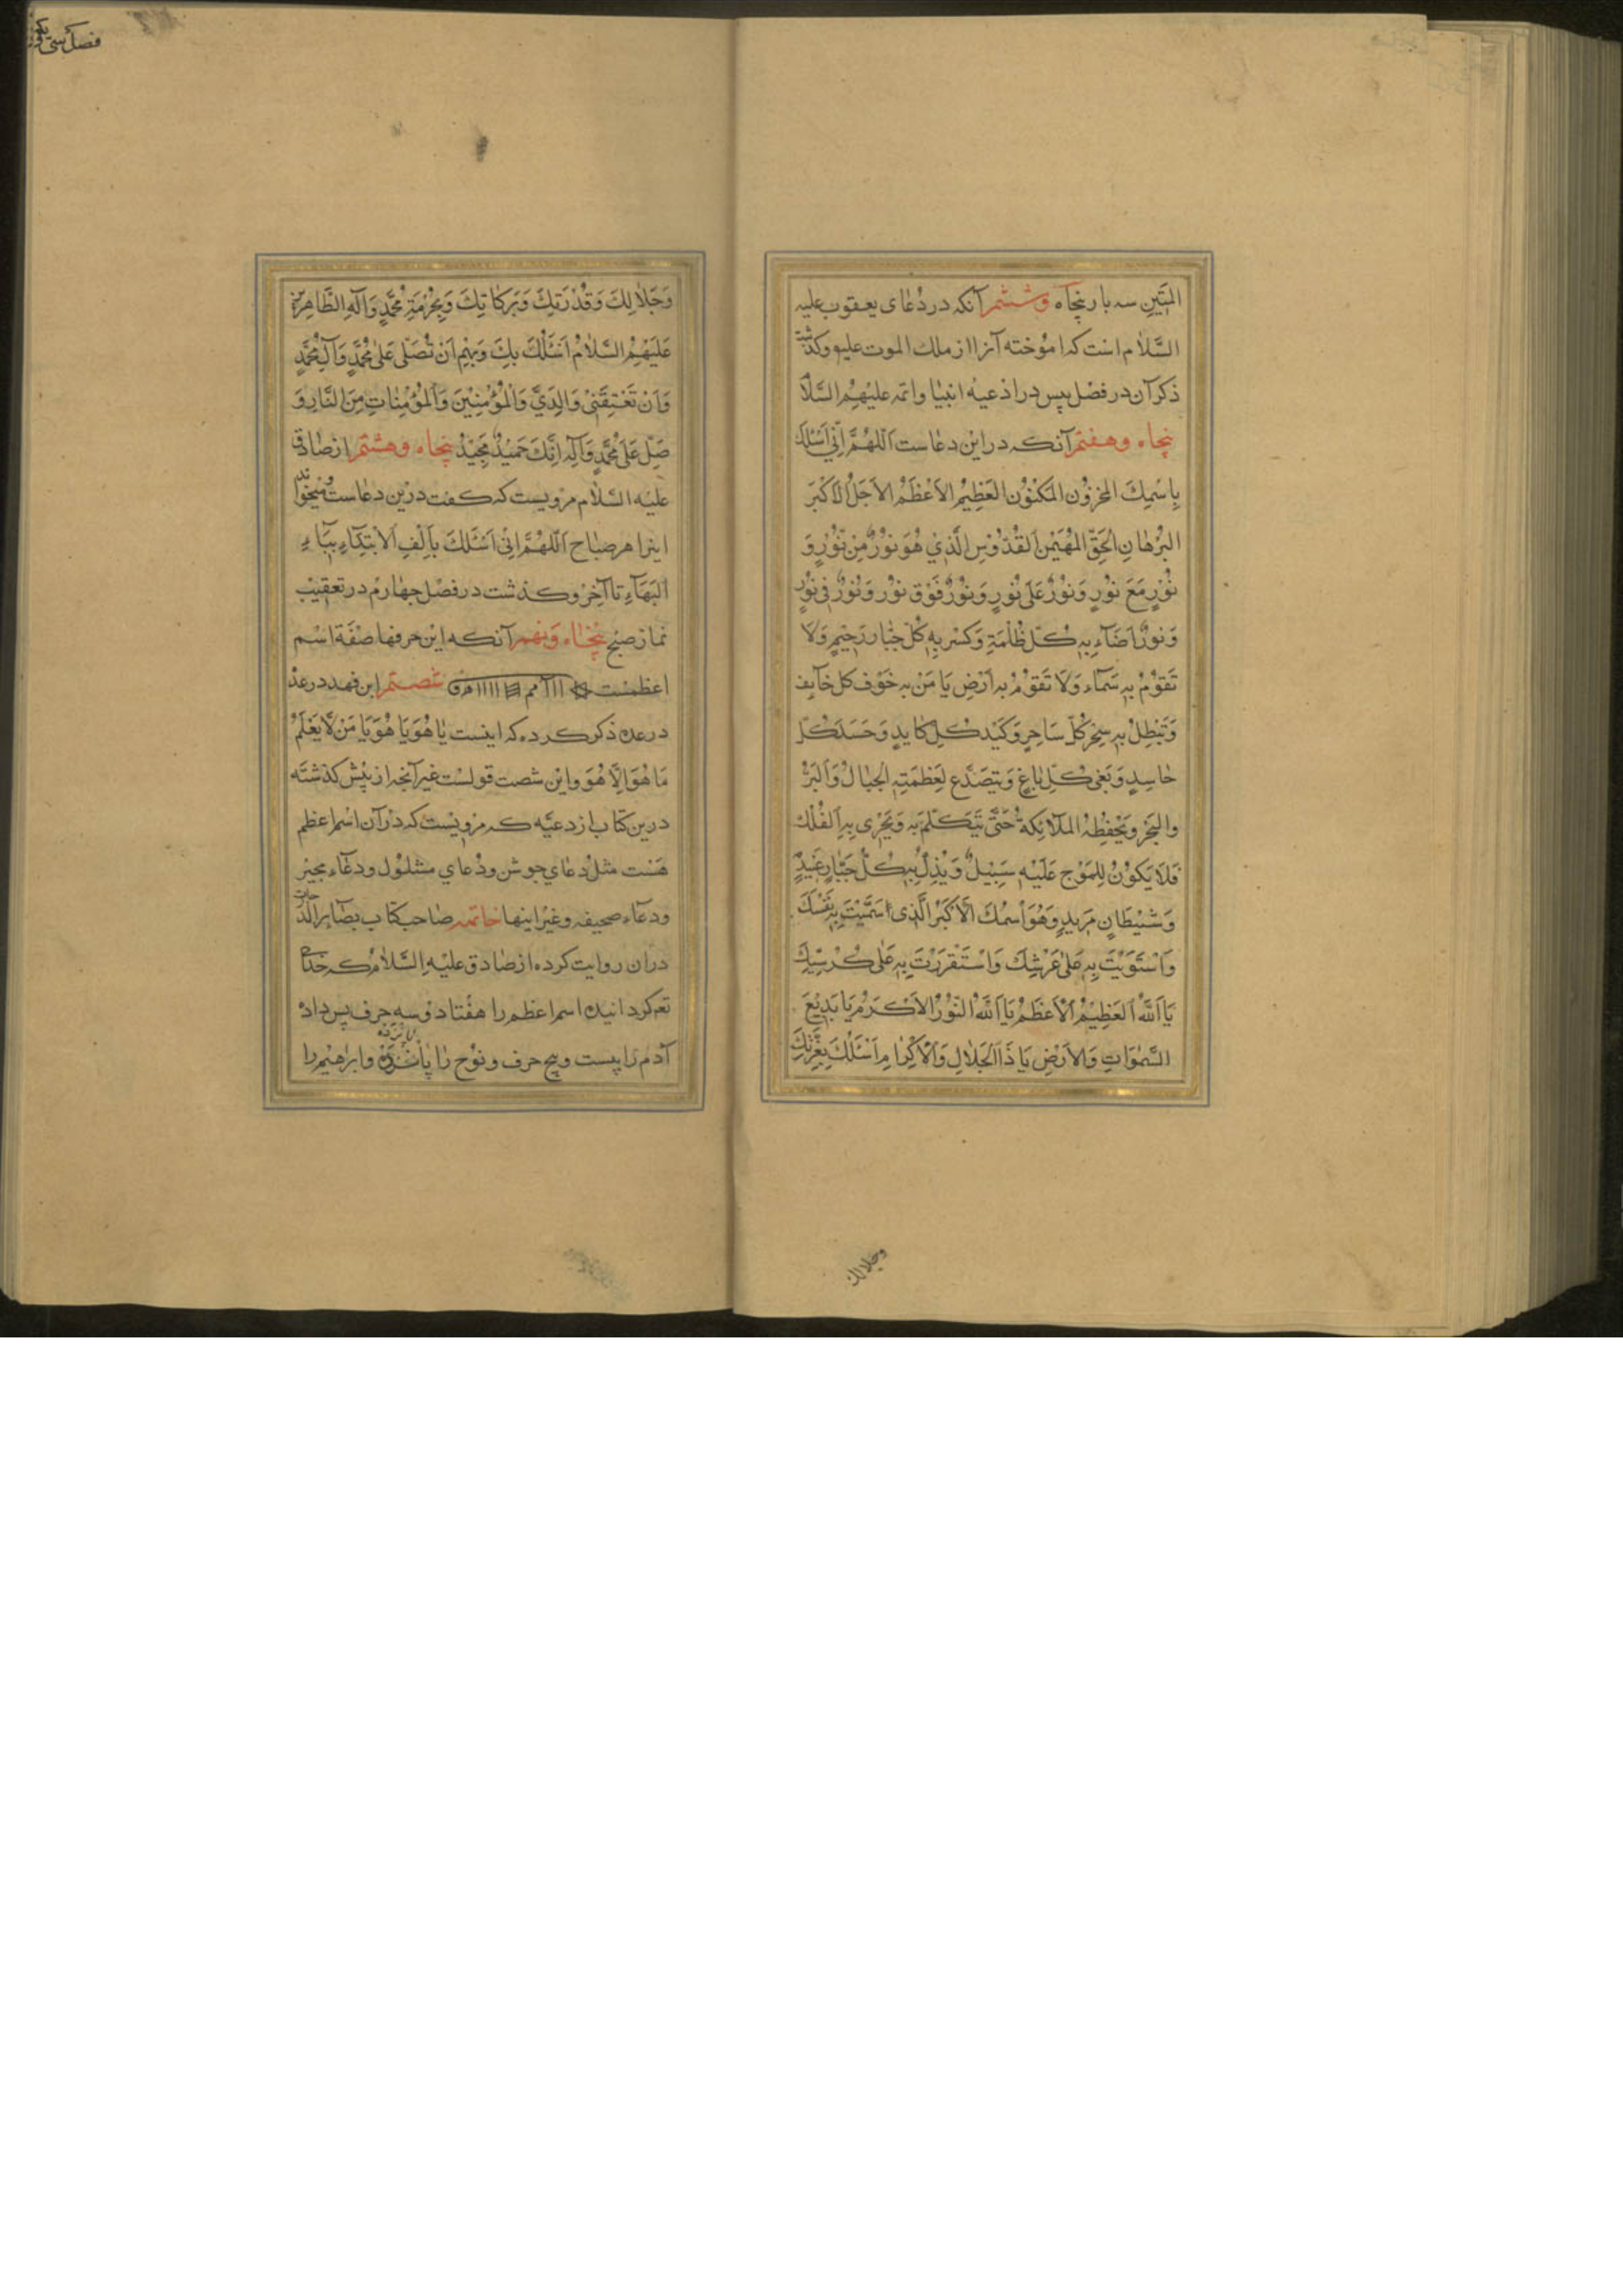 المَتينِ سه بار پنجاه وششم آنکه در دُعای یعقوب علیه
السَّلام است که اموخته آنرا از ملك الموت علیه وکذشته
ذکر آن در فصل بیس در ادعیه انبیا وائمه علیهم السَّلا
پنجاه وهفتم آنکه در این دعاست اَللّهُمَّ اِنّي اَسْئَلُكَ
بِاسْمِكَ المَخزُونِ المَكنُونِ العَظِيمِ الاَعْظَمِ الاَجَلِّ الاَكْبَرَ
البُرْهانِ الحَقِّ المُهَيْمِنِ اَلقُدّوُسِ الَّذِي هُوَ نوُرٌ مِنْ نوُرٍ وَ
نوُرٍ مَعَ نوُرٍ وَنوُرٌ عَلیٰ نوُرٍ وَنوُرٌ فَوْقَ نوُرٍ وَنوُرٌ فِي نوُرٍ
وَنوُرٌ اَضَآءِ بِهِ كُلّ ظُلْمَةٍ وَكَسْر بِهِ كُلّ جَبّار رَجيٖمٍ وَلا
تَقوُمُ بِهِ سَمآء وَلا تَقوُمُ بِهِ اَرْض يَا مَنْ بِهِ خَوْف كل خآيِف
وَتَبْطِلُ بِهِ سِحْر كُلِّ سَاحِرٍ وَكَيْد كُلِّ كايِدٍ وَحَسَد كُلّ
حاسِدٍ وَبَغي كُلِّ باغٍ وَيتصَدَّع لِعَظَمَتِهِ الجِبالُ وَالبَرُّ
والبَحْرُ وَيَحْفِظِهُ المَلآئِكةُ حَتّیٰ تَتكَلَّمَ بِهِ وَيَجْری بِهِ اَلفُلْكُ
فَلا يَكوُنُ لِلمَوْجِ عَلَيْهِ سَبِيلٌ وَيُذِلُّ بِهِ كُلُّ جَبّارٍ عَنِيدٍ
وَشَيْطَانٍ مَريدٍ وَهُوَ اَسمُكَ الاَكبَرُ الَّذِی سَمَّيْتَ بِهِ نَفْسَكَ
وَاسْتَوَيْتَ بِهِ عَلیٰ عَرْشِكَ وَاسْتَقرَرْتَ بِهِ عَلیٰ كُرْسِيِّكَ
يَا اَللّهُ اَلعَظِيمُ اَلاَعظَمُ يَا اَللّهُ النّوُرُ الاَكرَمُ يَا بَدِيعَ
السَّمٰوَاتِ وَالاَرْضِ يَا ذَا الجَلالِ وَالاِكرٰامِ اَسْئَلُكَ بِعِزَّتِكَ
وجلالك
فصل سی یکم
وَجَلالِكَ وَقُدْرَتِكَ وَبَرَكاتِكَ وَبِحُرْمَةِ مُحَمَّدٍ وَآلِهِ الطَّاهِرينَ
عَلَيْهِمُ السَّلامُ اَسْئَلُكَ بِكَ وَبِهِمْ اَنْ تُصَلّیَ عَلیٰ مُحَمَّدٍ وَآلِ مُحَمَّدٍ
وَاَنْ تَعْتِقَنیٖ وَالِدَيَّ وَالمُؤْمِنيٖنَ وَاَلمُؤْمِنٰاتِ مِنَ النَّارِ وَ
صَلِّ عَلیٰ مُحَمَّدٍ وَآلِهِ اِنَّكَ حَمِيدٌ مَجيٖدٌ پنجاه وهشتم از صٰادق
علیه السّلام مرویست که کفت درین دعاست ومیخواند
اینرا هر صباح اَللّهُمَّ اِنّیٖ اَسْئَلُكَ بِاَلِفِ اَلابْتِدَآءِ بِبَاءِ
اَلبَهَآءِ تا آخِر وکذشت در فصل چهارم در تعقیب
نماز صبح پنجاه ونهم آنکه این حرفها صفة اسم
اعظمست شصتم ابن فهد در عدّ
در عده ذکر کرده که اینست یا هُوَ یا هُوَ یَا مَنْ لا یَعْلَمُ
مَا هُوَ اِلّا هُوَ واین شصت قولست غیر آنچه از پیش کذشته
درین کتاب از دعیّه که مرویست که در آن اسم اعظم
هست مثل دعای جوشن ودُعای مشلول ودعاء مجیر
ودعآء صحیفه وغیر اینها خاتمه صاحب کتاب بصٰایر الدّرجات
دران روایت کرده از صٰادق علیه السّلام که خدای
تع کردانیده اسم اعظم را هفتاد وسه حرف پس داد
پانزده
آدم را بیست وپنج حرف ونوُح را پانزده وابرٰهیم را